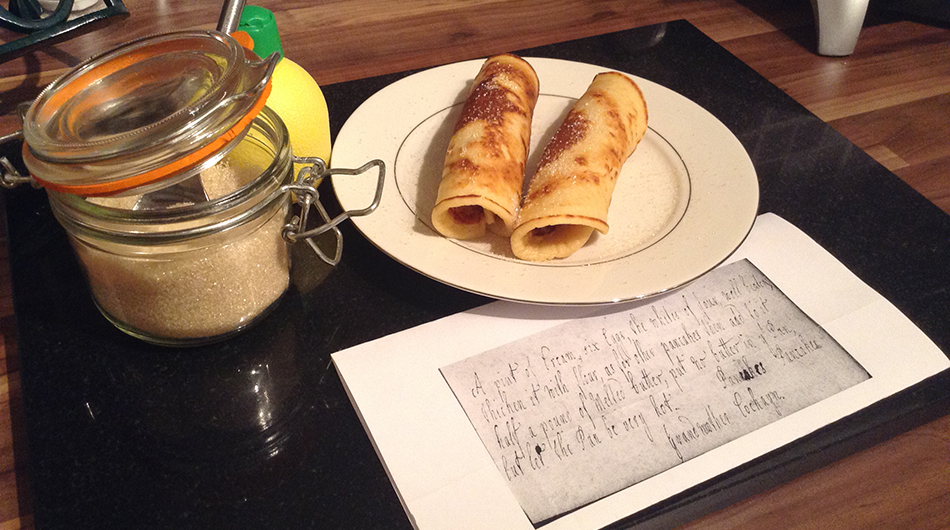 A pint of Cream, six Eggs, the whites of four, well beaten
thicken it with flour, as for other pancakes then add to it
half a pound of Melted Butter, put no butter in ye Pan,
but let the Pan be very hot. Pancakes Pancakes
Grandmother